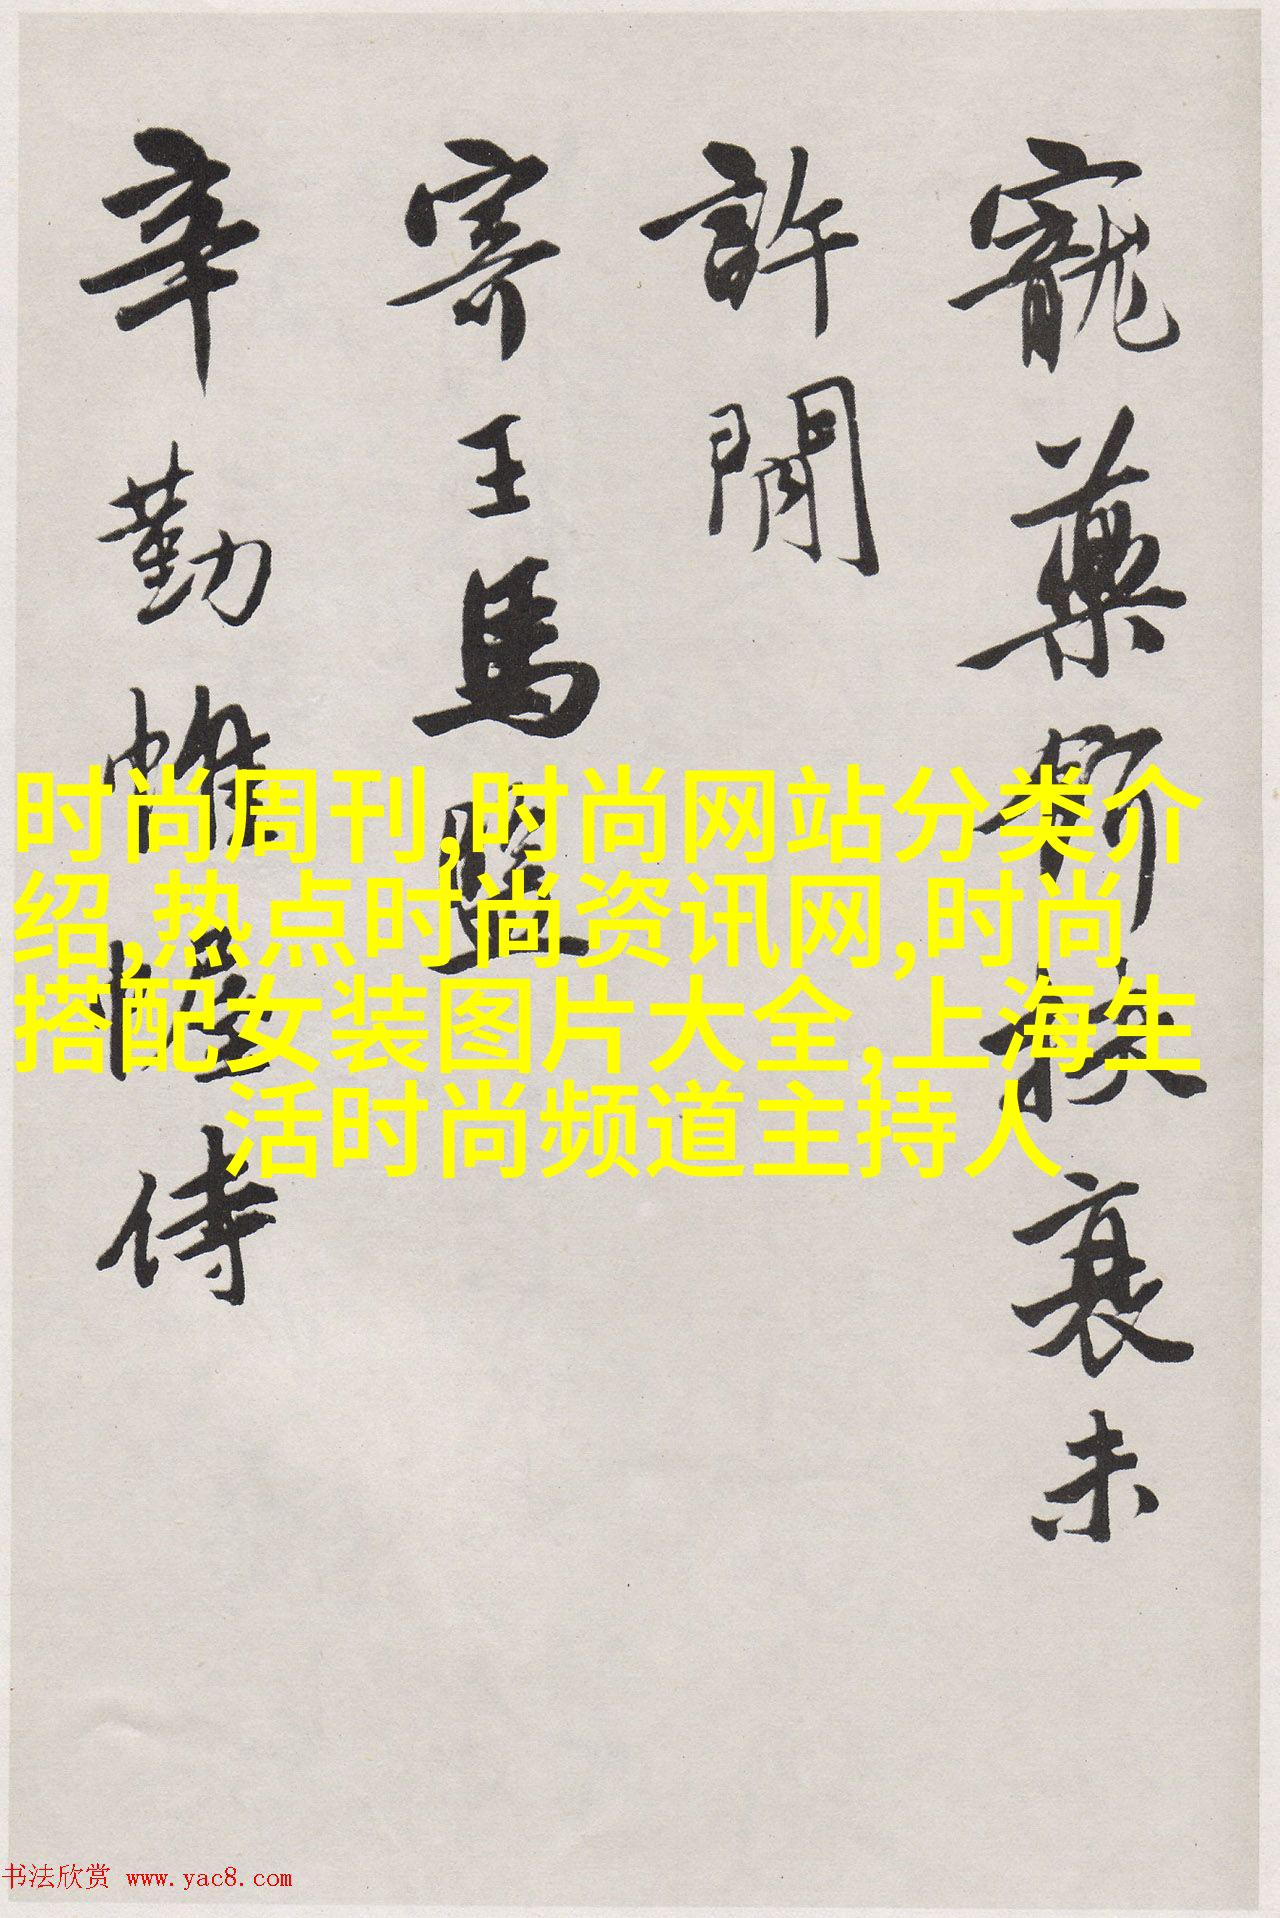 寵藥扶衰未
許閒
寄王馬
辛勤帷幄侍
时尚周刊,时尚网站分类介
绍,热点时尚资讯网,时尚
搭配女装图片大全,上海生
活时尚频道主持人
书法欣赏 www.yac8.com